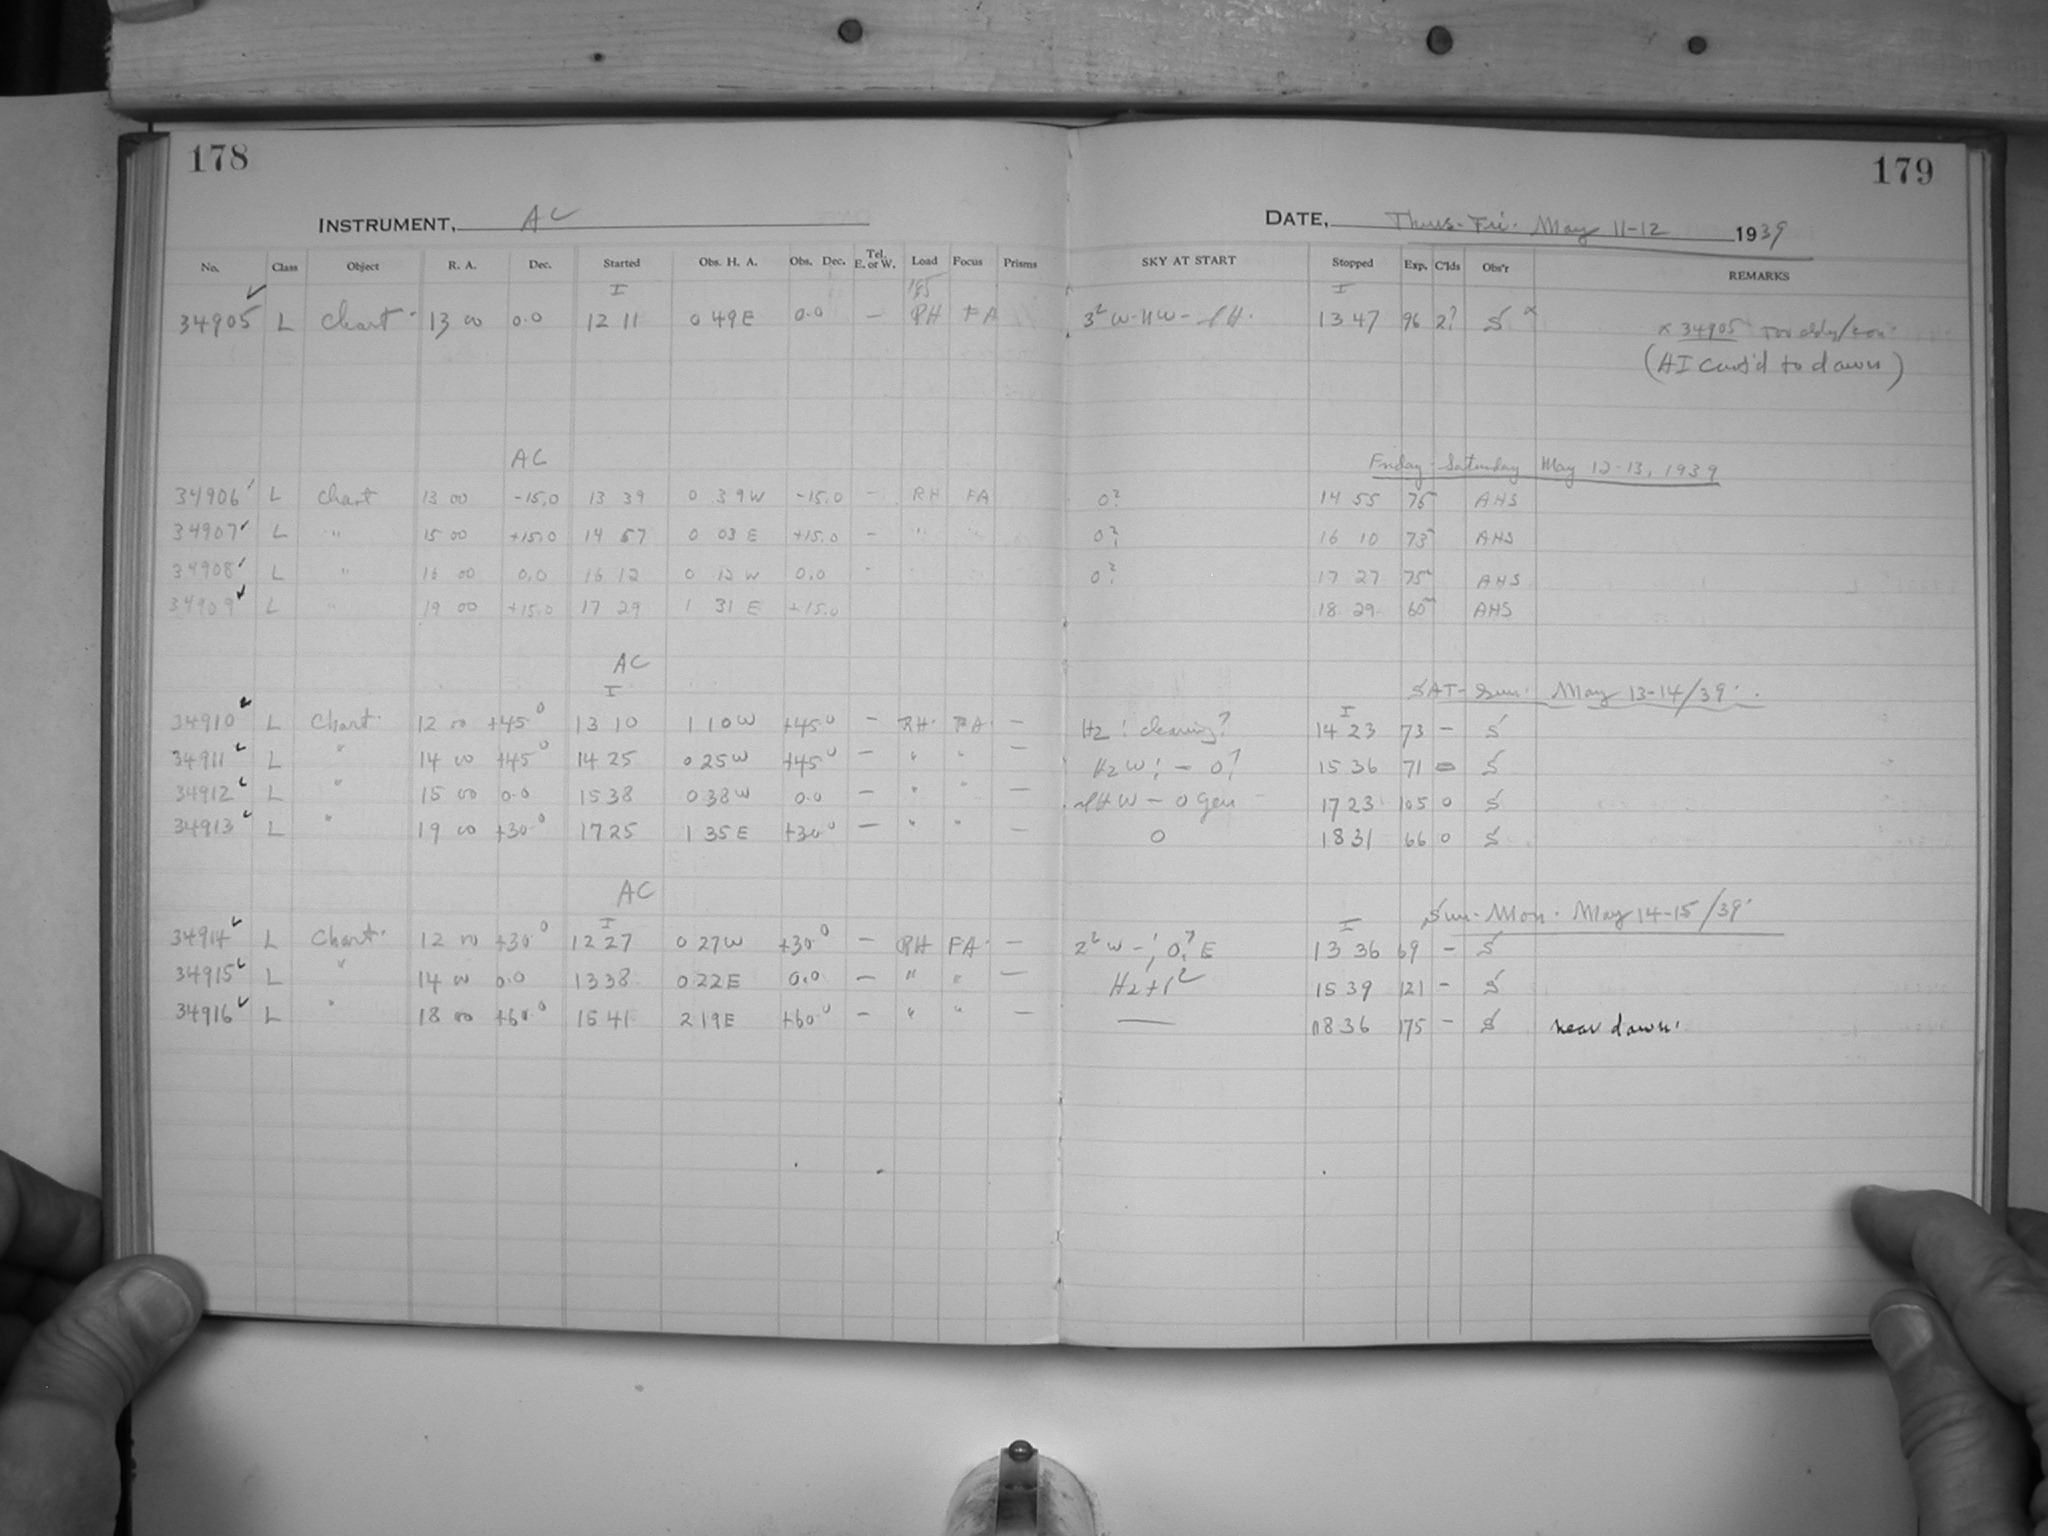 178
179
INSTRUMENT, AC
DATE, Thurs-Fri. May 11-12 1939
No. Class Object R. A. Dec. Started Obs. H. A. Obs. Dec. Tel. E. or W. Load Focus Prisms SKY AT START Stopped Exp. C'lds Obs'r REMARKS
I I
34905 L Chart 13 00 0.0 12 11 0 49 E 0.0 — RH FA 3² W-NW- 13 47 96 2? S x x 34905
(AI cont'd to dawn)
AC Friday-Saturday May 12-13, 1939
34906 L Chart 13 00 -15.0 13 39 0 39 W -15.0 - RH FA 0? 14 55 75 AHS
34907 L " 15 00 +15.0 14 57 0 03 E +15.0 - " " 0? 16 10 73 AHS
34908 L " 16 00 0.0 16 12 0 12 W 0.0 - 0? 17 27 75 AHS
34909 L " 19 00 +15.0 17 29 1 31 E +15.0 18 29 60 AHS
AC
I SAT-Sun. May 13-14/39.
I
34910 L Chart 12 00 +45° 13 10 1 10 W +45° — RH FA — H2! clearing? 14 23 73 — S
34911 L " 14 00 +45° 14 25 0 25 W +45° — " " — H2 W! — 0? 15 36 71 — S
34912 L " 15 00 0.0 15 38 0 38 W 0.0 — " " — W — 0 Gen 17 23 105 0 S
34913 L " 19 00 +30° 17 25 1 35 E +30° — " " — 0 18 31 66 0 S
AC
I I Sun-Mon. May 14-15/39.
34914 L Chart 12 00 +30° 12 27 0 27 W +30° — RH FA — 2² W -! 0? E 13 36 69 — S
34915 L " 14 00 0.0 13 38 0 22 E 0.0 — " " — H2+1² 15 39 121 - S
34916 L " 18 00 +60° 15 41 2 19 E +60° — " " — — 18 36 175 - S near dawn.